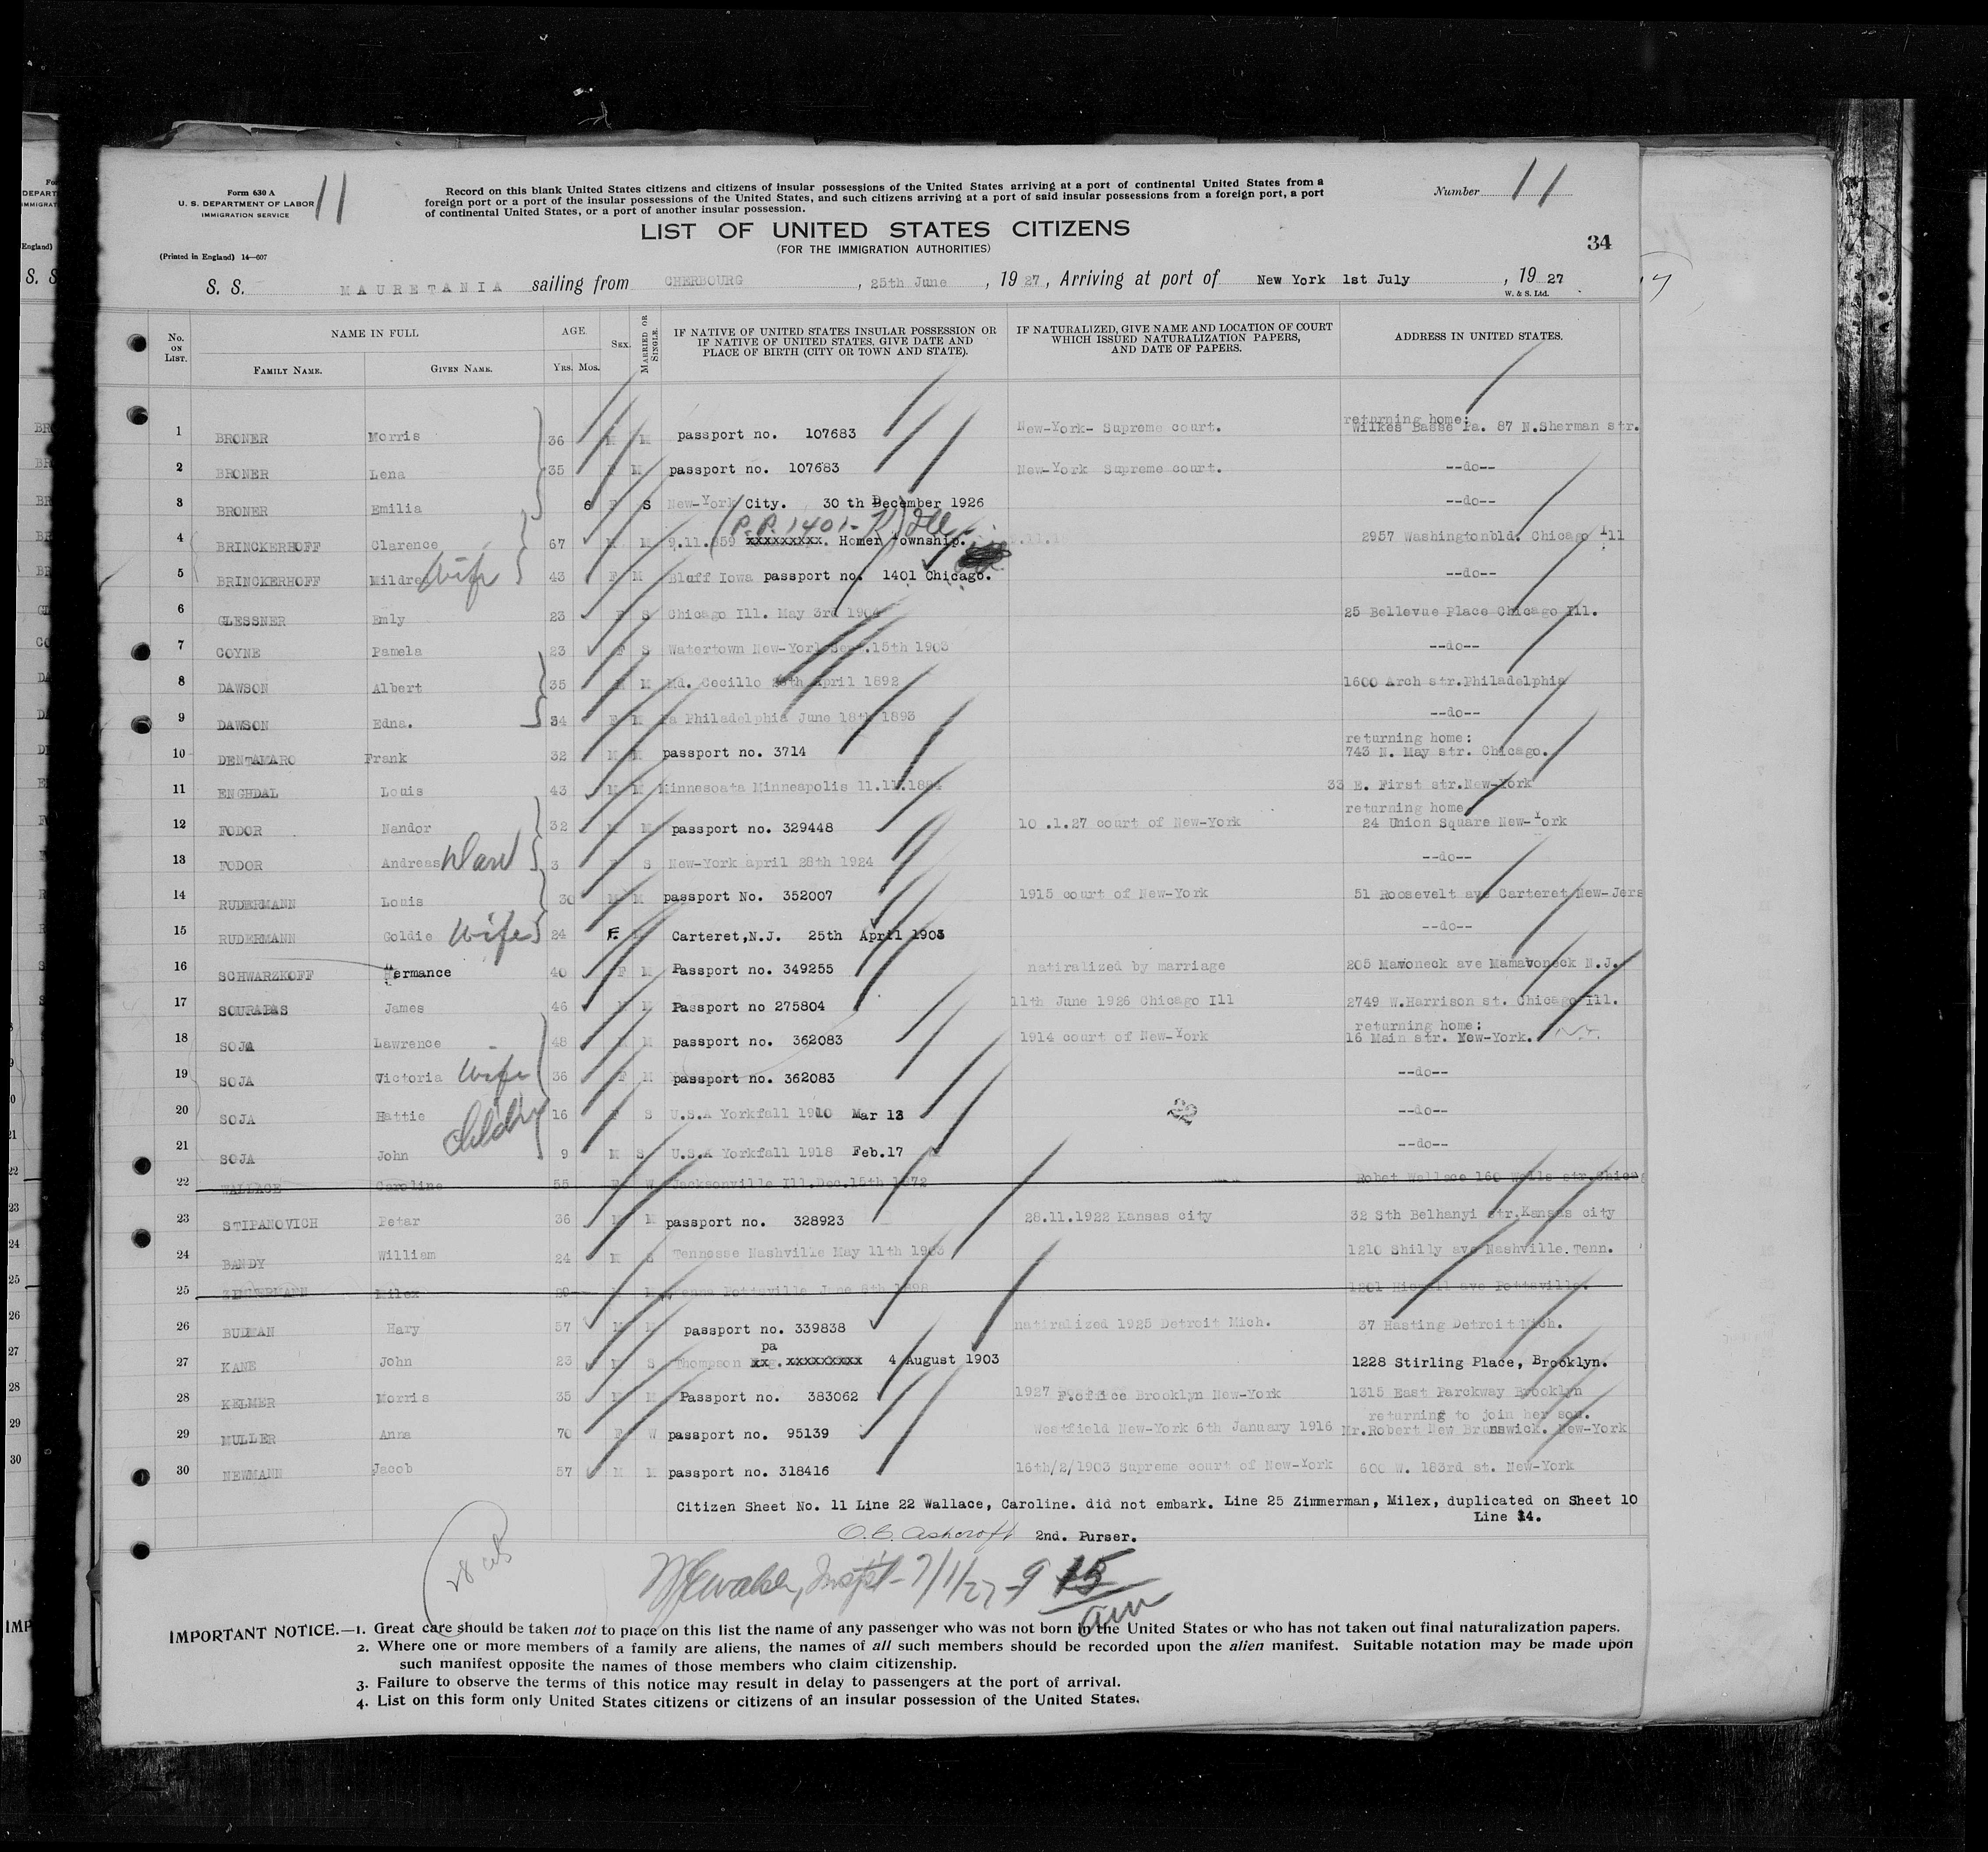 Form 630 A
U. S. DEPARTMENT OF LABOR
IMMIGRATION SERVICE
11
(Printed in England) 14—607
Record on this blank United States citizens and citizens of insular possessions of the United States arriving at a port of continental United States from a
foreign port or a port of the insular possessions of the United States, and such citizens arriving at a port of said insular possessions from a foreign port, a port
of continental United States, or a port of another insular possession.
Number 11
LIST OF UNITED STATES CITIZENS
(FOR THE IMMIGRATION AUTHORITIES)
34
S. S. MAURETANIA sailing from CHERBOURG , 25th June , 19 27 , Arriving at port of New York 1st July , 19 27
W. & S. Ltd.
No. ON LIST. NAME IN FULL FAMILY NAME. GIVEN NAME. AGE YRS. MOS. SEX. MARRIED OR SINGLE. IF NATIVE OF UNITED STATES INSULAR POSSESSION OR IF NATIVE OF UNITED STATES, GIVE DATE AND PLACE OF BIRTH (CITY OR TOWN AND STATE). IF NATURALIZED, GIVE NAME AND LOCATION OF COURT WHICH ISSUED NATURALIZATION PAPERS, AND DATE OF PAPERS. ADDRESS IN UNITED STATES.
returning home:
1 BRONER Morris 36 M M passport no. 107683 New-York- Supreme court. Wilkes Basse Pa. 87 N.Sherman str.
2 BRONER Lena 35 F M passport no. 107683 New-York Supreme court. --do--
3 BRONER Emilia 6 F S New-York City. 30 th December 1926 --do--
(P.P. 1401- Ill
4 BRINCKERHOFF Clarence 67 M M 9.11.859 xxxxxxxxx. Homer Township. 2957 Washingtonbld. Chicago Ill
5 BRINCKERHOFF Mildred wife 43 F M Bluff Iowa passport no. 1401 Chicago. --do--
6 GLESSNER Emly 23 F S Chicago Ill. May 3rd 1904 25 Bellevue Place Chicago Ill.
7 COYNE Pamela 23 F S Watertown New-York Sept.15th 1903 --do--
8 DAWSON Albert 35 M M Md. Cecillo 26th April 1892 1600 Arch str.Philadelphia
9 DAWSON Edna. 34 F M Pa Philadelphia June 18th 1893 --do--
returning home:
10 DENTAMARO Frank 32 M M passport no. 3714 743 N. May str. Chicago.
11 ENGHDAL Louis 43 M M Minnesoata Minneapolis 11.11.1884 33 E. First str.New-York
returning home
12 FODOR Nandor 32 M M passport no. 329448 10 .1.27 court of New-York 24 Union Square New-York
13 FODOR Andreas 3 F S New-York april 28th 1924 --do--
14 RUDERMANN Louis 30 M M passport No. 352007 1915 court of New-York 51 Roosevelt ave Carteret New-Jers
15 RUDERMANN Goldie wife 24 F. Carteret,N.J. 25th April 1903 --do--
16 SCHWARZKOFF Hermance 40 F M Passport no. 349255 natiralized by marriage 205 Mamoneck ave Mamavoneck N.J.
17 SOURABAS James 46 M M Passport no 275804 11th June 1926 Chicago Ill 2749 W.Harrison st. Chicago Ill.
returning home:
18 SOJA Lawrence 48 M M passport no. 362083 1914 court of New-York 16 Main str. New-York.
19 SOJA Victoria wife 36 F M passport no. 362083 --do--
20 SOJA Hattie 16 F S U.S.A Yorkfall 1910 Mar 13 --do--
children
21 SOJA John 9 M S U.S.A Yorkfall 1918 Feb.17 --do--
22 WALLACE Caroline 55 F W Jacksonville Ill.Dec.15th 1872 Robet Wallace 160 Wells str.Chicag
23 STIPANOVICH Petar 36 M M passport no. 328923 28.11.1922 Kansas city 32 Sth Belhanyi str.Kansas city
24 BANDY William 24 M S Tennesse Nashville May 11th 1903 1210 Shilly ave Nashville.Tenn.
25 ZIMMERMANN Milex 29 M M Penna Pottsville June 8th 1898 1201 ave Pottsville.
26 BUDMAN Hary 57 M M passport no. 339838 natiralized 1925 Detroit Mich. 37 Hasting Detroit Mich.
pa
27 KANE John 23 M S Thompson xx . xxxxxxxxx 4 August 1903 1228 Stirling Place, Brooklyn.
28 KELMER Morris 35 M M Passport no. 383062 1927 F.office Brooklyn New-York 1315 East Parckway Brooklyn
returning to join her son.
29 MULLER Anna 70 F W passport no. 95139 Westfield New-York 6th January 1916 Mr.Robert New Brunswick. New-York
30 NEWMANN Jacob 57 M M passport no. 318416 16th/2/1903 Supreme court of New-York 600 W. 183rd st. New-York
Citizen Sheet No. 11 Line 22 Wallace, Caroline. did not embark. Line 25 Zimmerman, Milex, duplicated on Sheet 10
Line 14.
O. C. Ashcroft 2nd. Purser.
28 cits
Inspt - 7/1/27 - 9 15 am
IMPORTANT NOTICE.—1. Great care should be taken not to place on this list the name of any passenger who was not born in the United States or who has not taken out final naturalization papers.
2. Where one or more members of a family are aliens, the names of all such members should be recorded upon the alien manifest. Suitable notation may be made upon
such manifest opposite the names of those members who claim citizenship.
3. Failure to observe the terms of this notice may result in delay to passengers at the port of arrival.
4. List on this form only United States citizens or citizens of an insular possession of the United States.